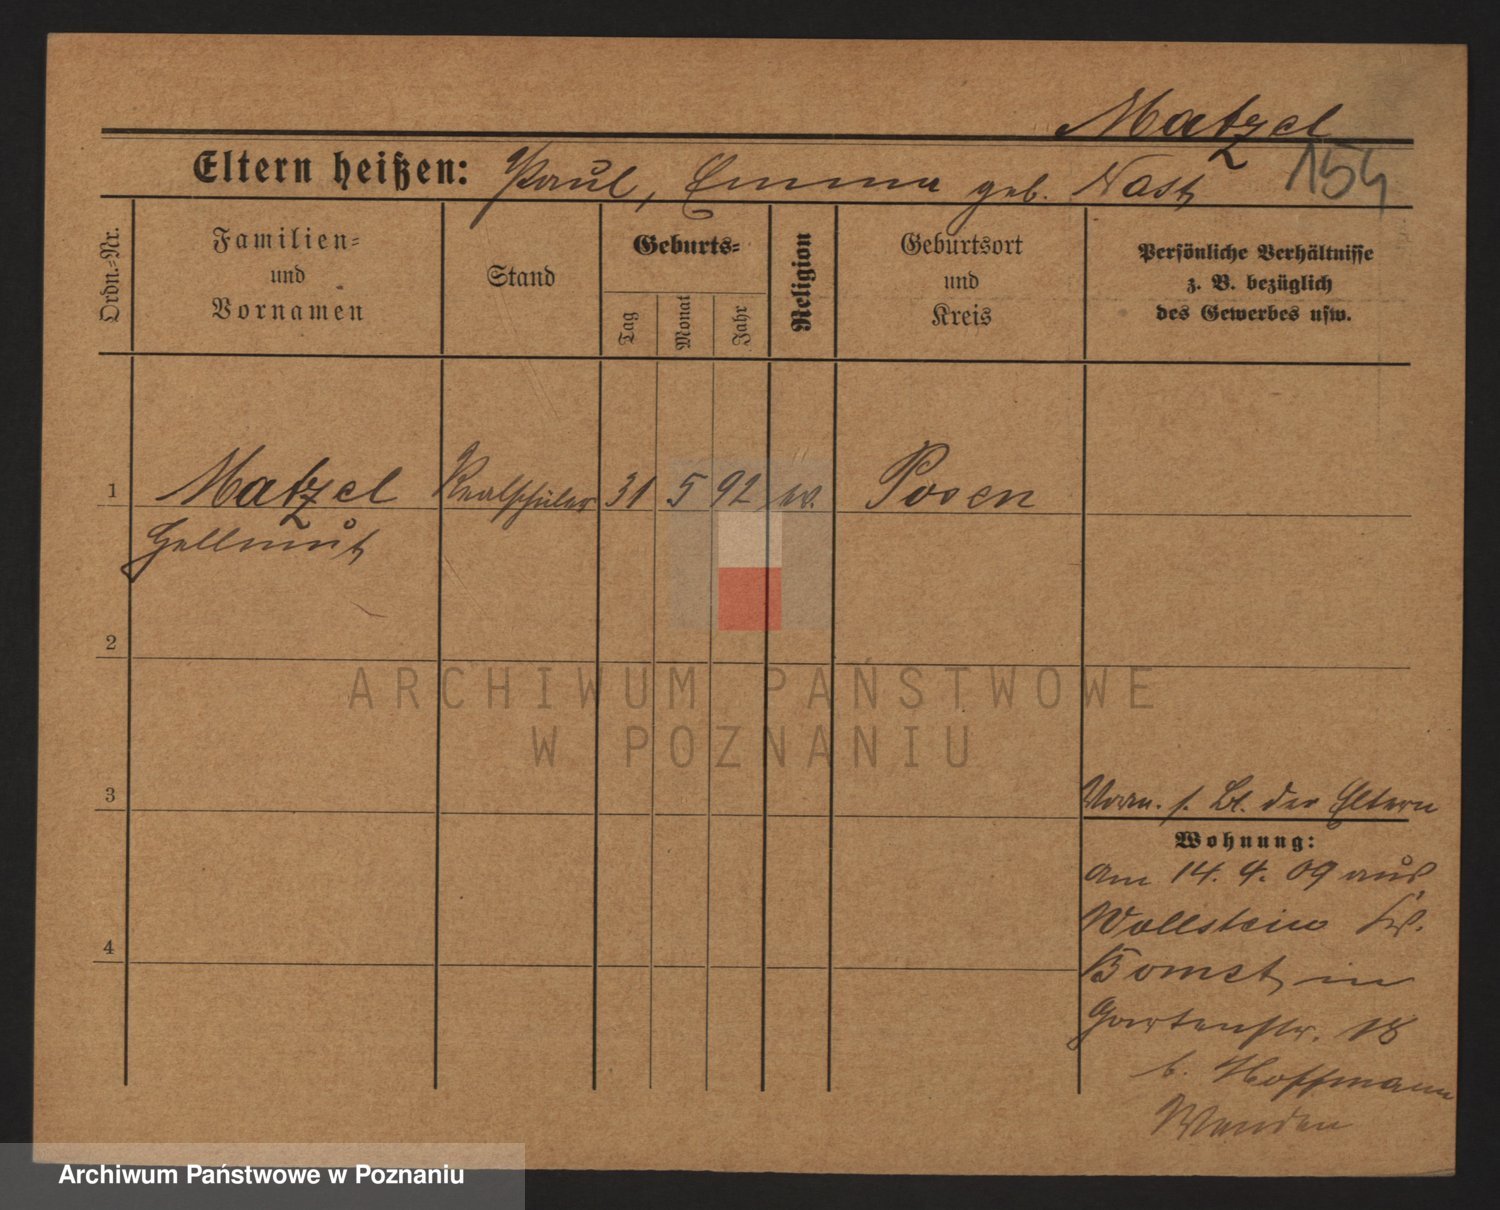 Matzel
154
Eltern heißen: Paul, Emma geb. Nast
Ordn.-Nr.
Familien-
und
Vornamen
Stand
Geburts-
Tag
Monat
Jahr
Religion
Geburtsort
und
Kreis
Persönliche Verhältnisse
z. B. bezüglich
des Gewerbes usw.
1 Matzel Realschüler 31 5 92 ev. Posen
Hellmut
2
ARCHIWUM PAŃSTWOWE
W POZNANIU
3
Vorn. s. Bl. der Eltern
Wohnung:
am 14. 4. 09 aus
Wollstein Kr.
4
Bomst in
Gartenstr. 18
b. Hoffmann
Archiwum Państwowe w Poznaniu